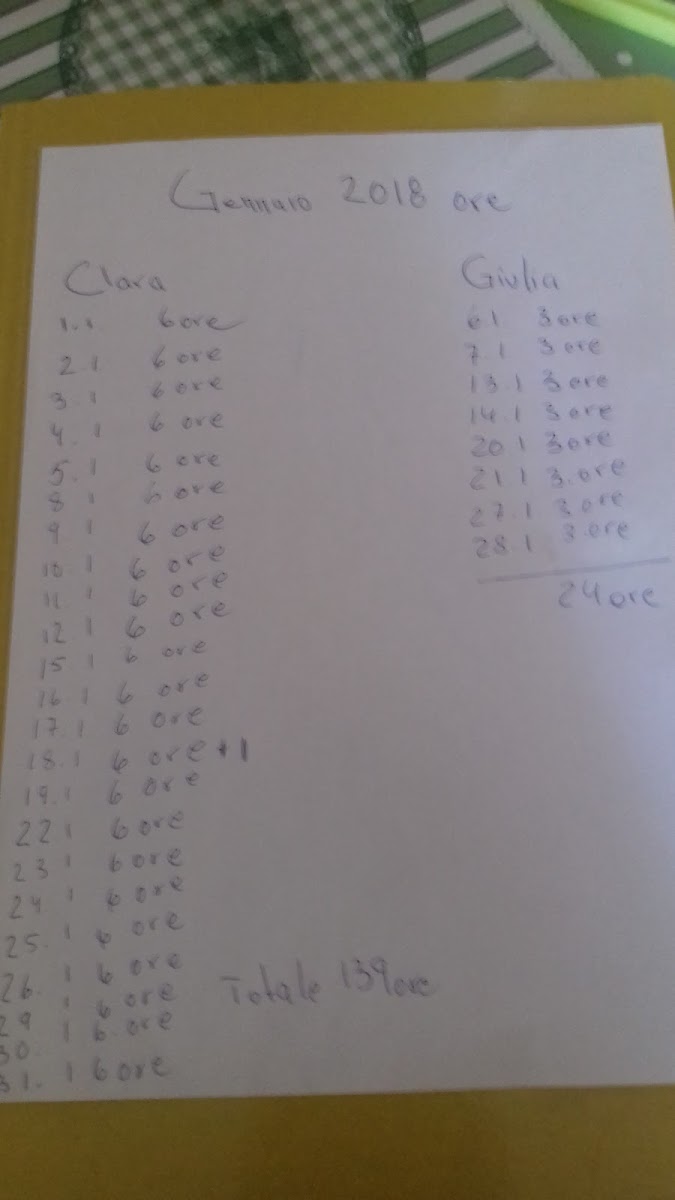 Gennaro 2018 ore
Clara
1.1 6 ore
2.1 6 ore
3.1 6 ore
4.1 6 ore
5.1 6 ore
8 1 6 ore
9 1 6 ore
10 1 6 ore
11 1 6 ore
12 1 6 ore
15 1 6 ore
16.1 6 ore
17.1 6 ore
18.1 6 ore +1
19.1 6 ore
22 1 6 ore
23 1 6 ore
24 1 6 ore
25. 1 6 ore
26. 1 6 ore
29 1 6 ore
30. 1 6 ore
31. 1 6 ore
Totale 139 ore
Giulia
6.1 3 ore
7.1 3 ore
13.1 3 ore
14.1 3 ore
20.1 3 ore
21.1 3 ore
27.1 3 ore
28.1 3 ore
24 ore